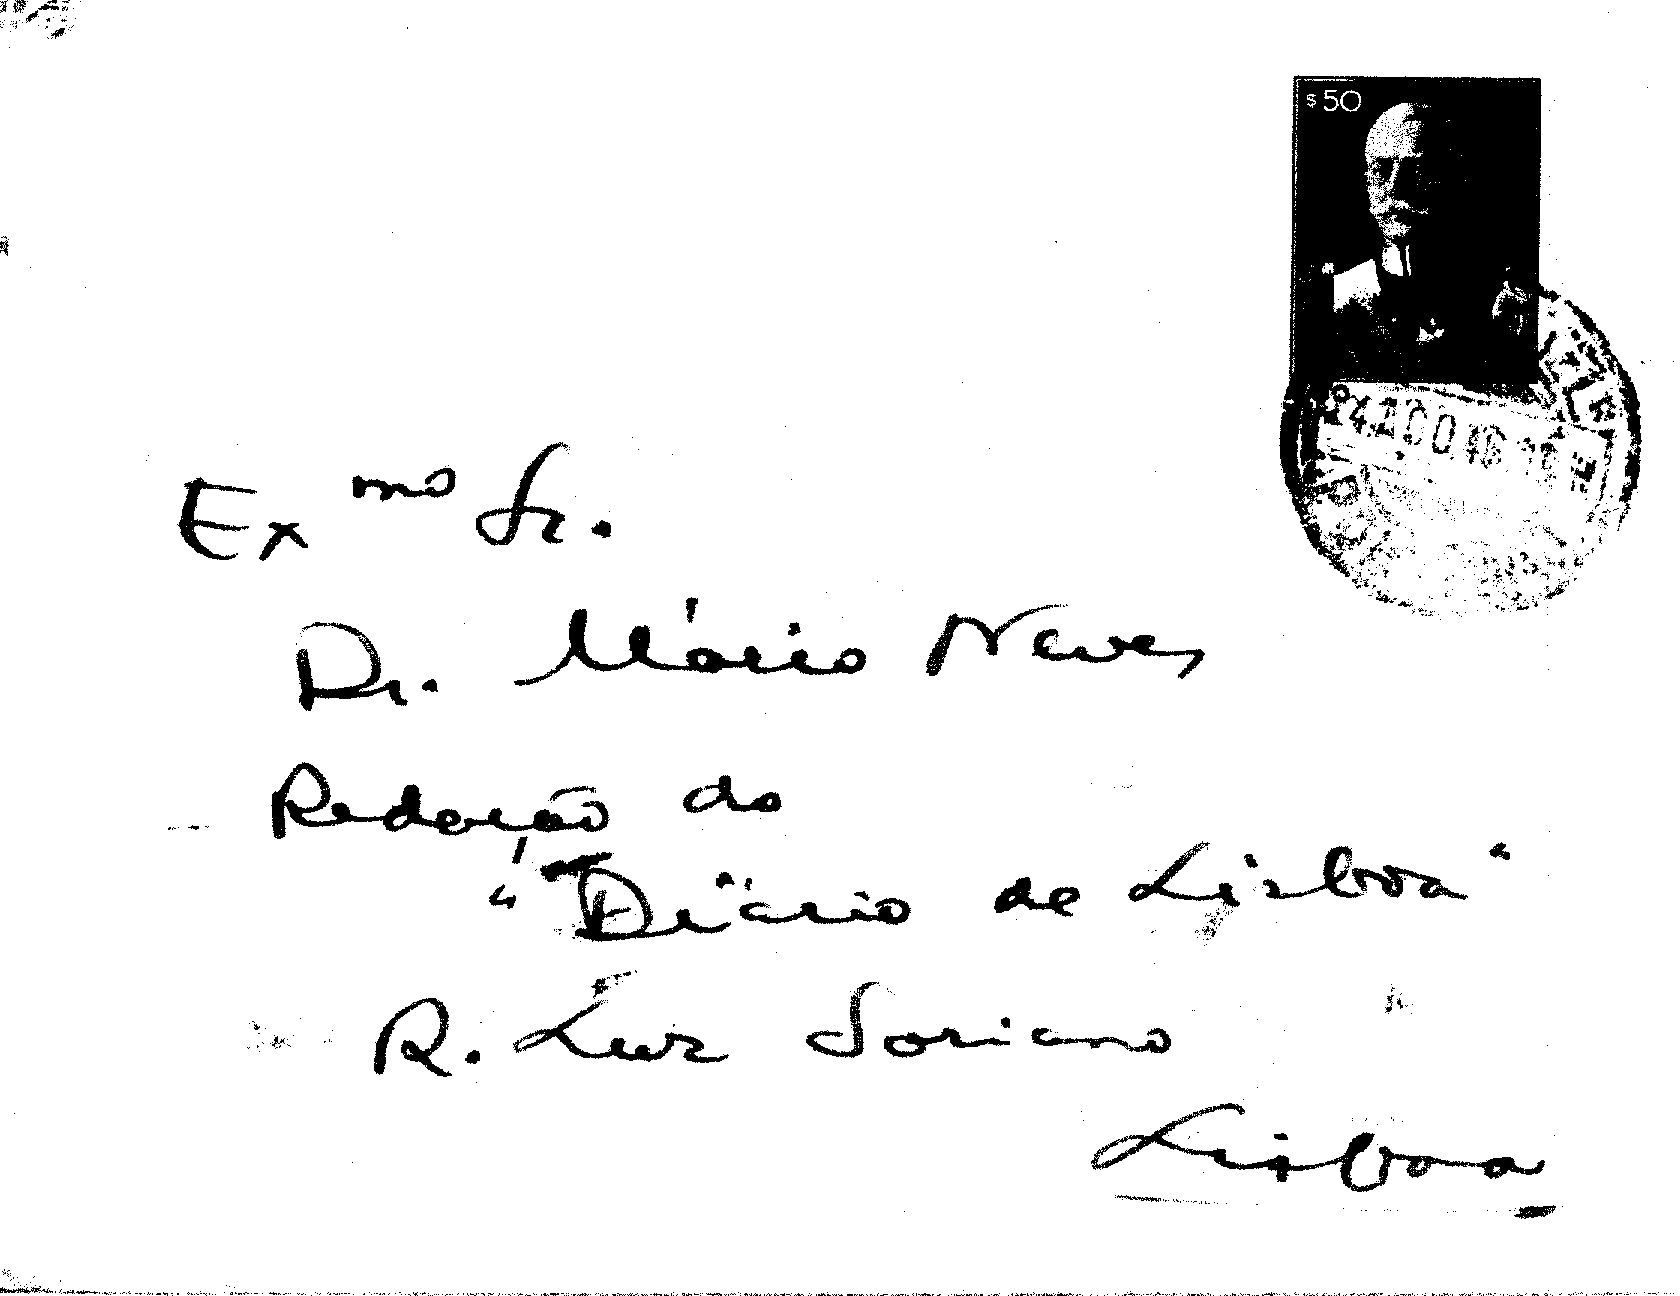 $50
Ex mo Sr.
Dr. Mário Neves
Redação do
"Diário de Lisboa"
R. Luz Soriano
Lisboa